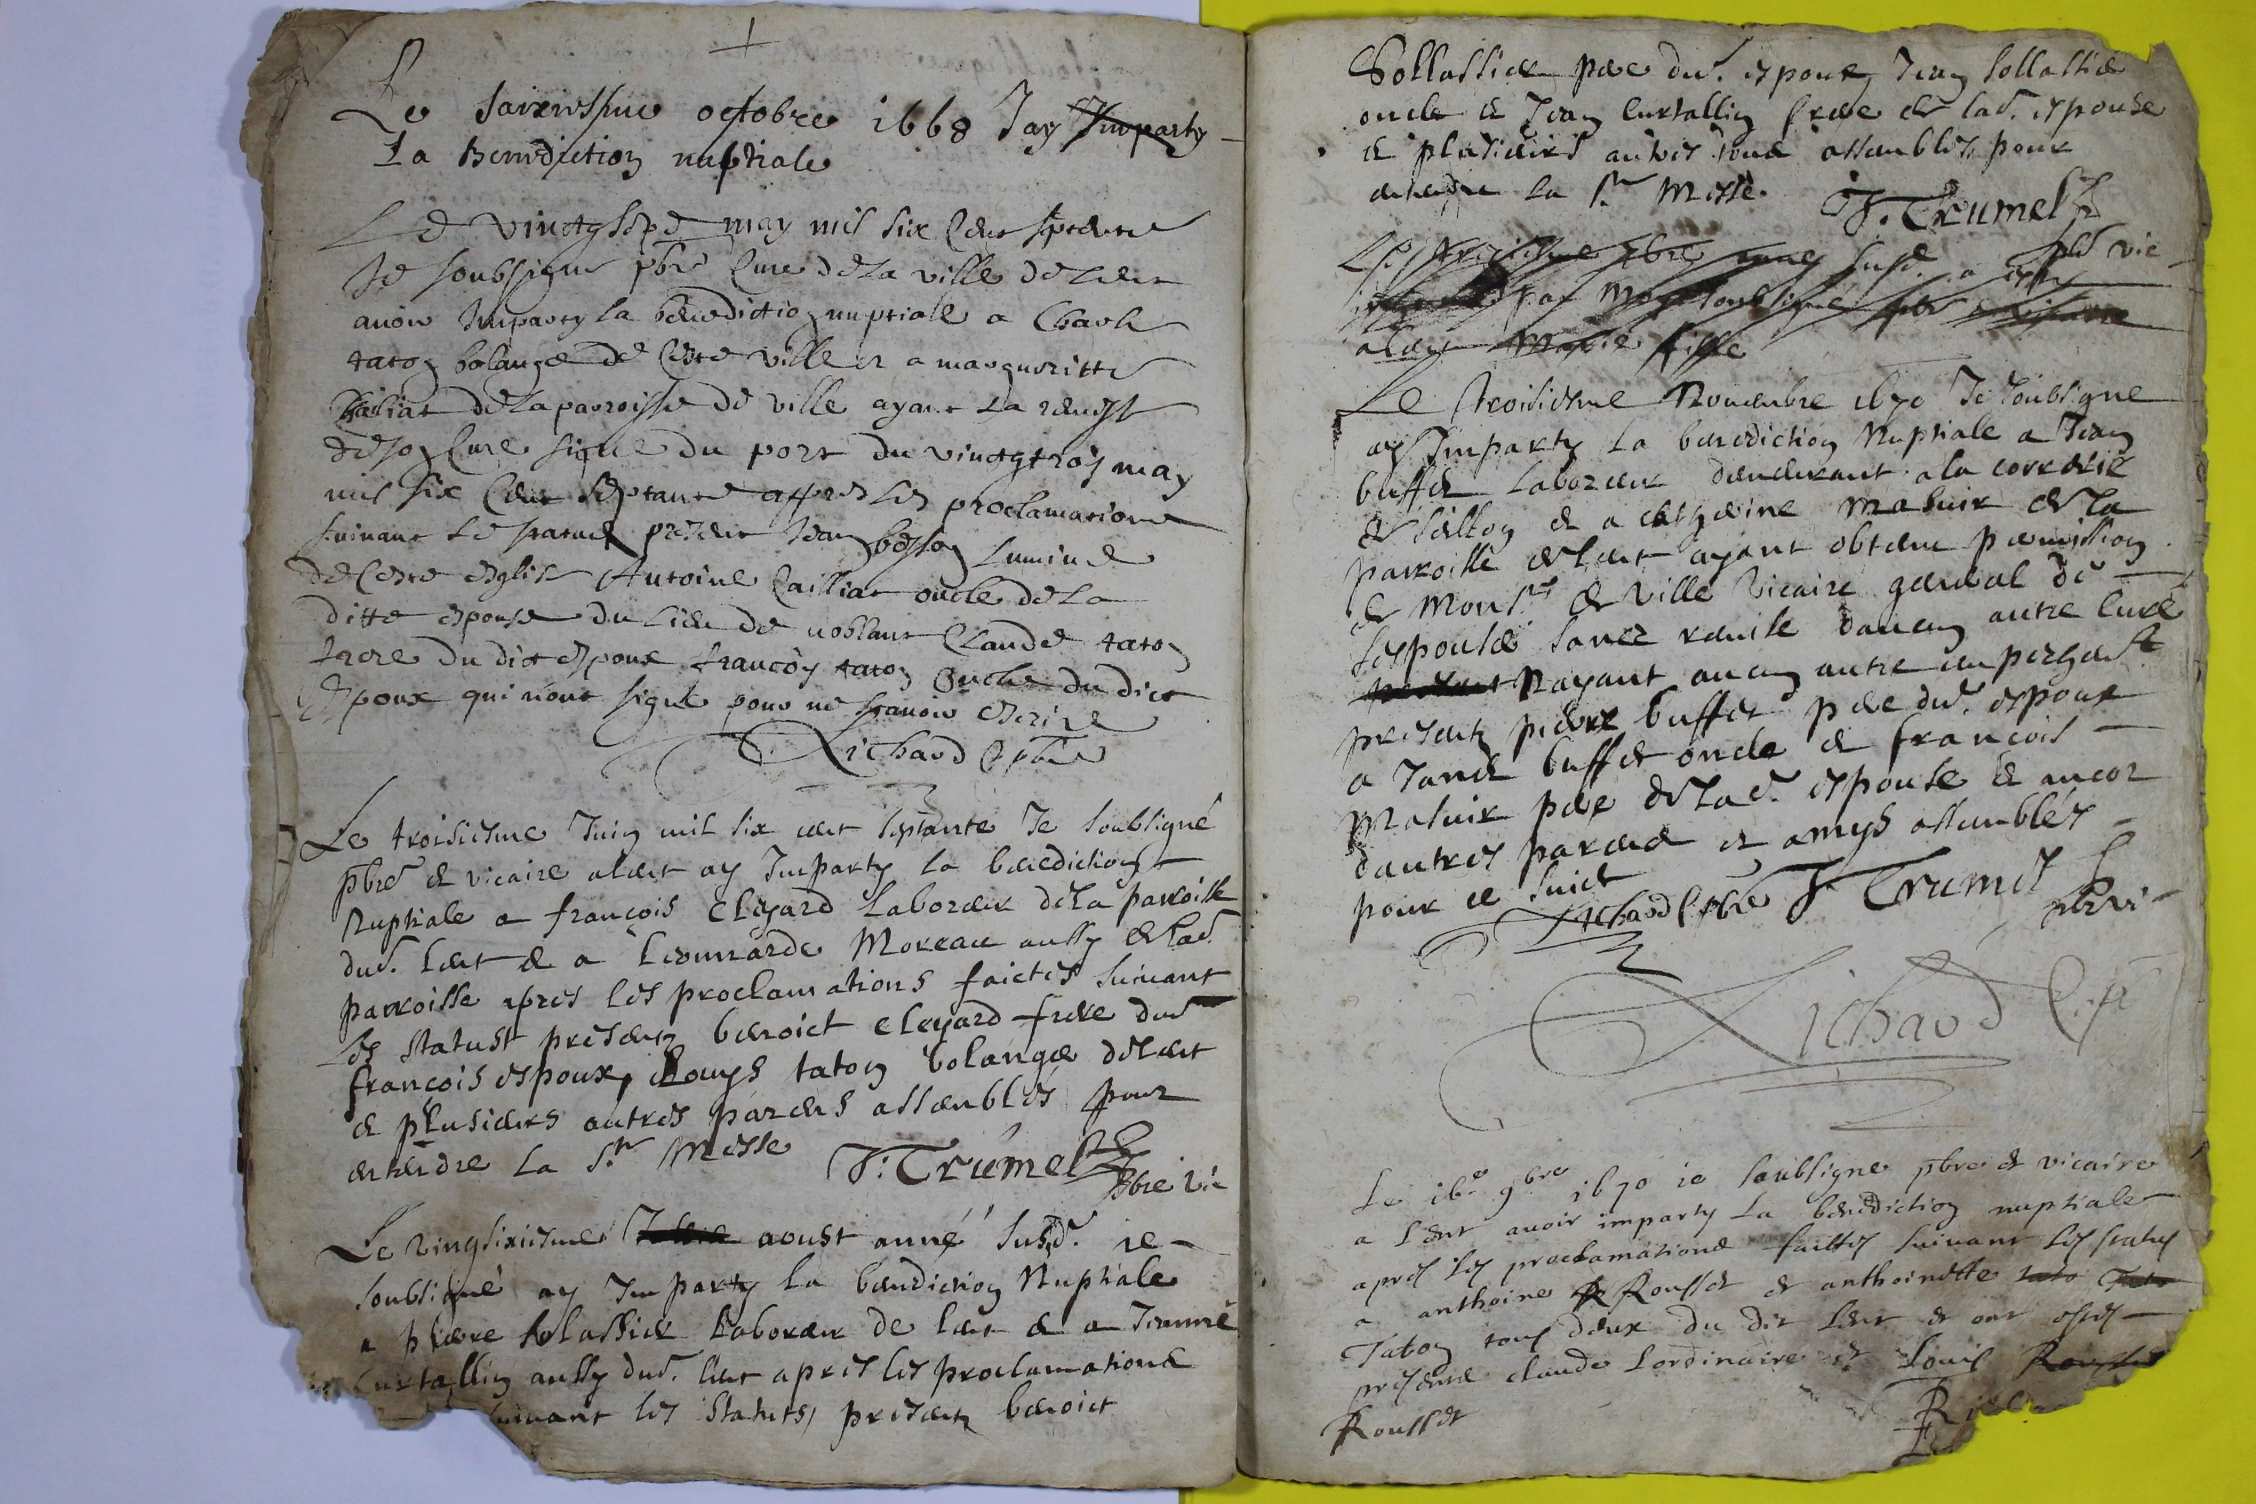 Le saixiesme octobre 1668 Jay Imparty
La Benediction nuptiale
Le vingtsept may mil six cent septente
Je soubsigne pbre Cure de la ville de Lent
avoir Imparty la benediction nuptiale a Charle
taton bolange de ceste ville et a margueritte
Cailliat de la parroisse de ville ayant la remist
de son Cure signe du port du vingttrois may
mil six cent septante appres les proclamations
suivant le statud present Jean besson Lumine
de Ceste esglise Antoine Cailliat oncle de la
ditte espouse du Lieu de Claude taton
frere du dict espoux francoy taton oncle du dict
Espoux qui nont signe pour ne scavoir escrire
Richard C pbre
Le troisiesme Juin mil six cent septante Je soubsigné
pbre et vicaire a lent ay Imparty la benediction
Nuptiale a françois Cleyard Laboreur de la parroisse
dud. Lent et a Leonnarde Moreau aussy de lad.
parroisse apres les proclamations faictes suivant
Les statust presents benoict cleyard frere dud
françois espoux, Louys taton bolange de lent
et plusieurs autres parens assemblés pour
entendre la Ste Messe
J: Trumel
pbre Vic
Le vingsixiesme aoust anné susd. je
soubsigné ay Imparty la benediction Nuptiale
a pierre Sollassier Laboreur de lent et a Jeanne
Curtallin aussy dud. lent apres les proclamations
suivant les statuts, presents benoict
Sollassier pere dud. espoux Jean Sollassie
oncle et Jean Curtallin frere de lad. espouse
et plusieurs autres tous assemblés pour
entendre la Ste Messe.
J. Trumel
pbr vic
Le troisiesme 9bre susd. a esté
par moy soubsigné pbr vicaire
a lent Marie fille
Le troisiesme Novembre 1670 Je soubsigne
ay Imparty la benediction Nuptiale a Jean
buffet Laboreur demeurant a la correrie
de seillon et a catherine Masuir de la
parroisse de lent ayant obtenu permission
de Monsr de Ville Vicaire general de
sespouse sanz remise daucun autre Cure
Nayant aucun autre empeschet
presents pierre buffet pere dud. espoux
a Jande buffet oncle et françois
Masuir pere de lad. espouse et ancor
dautres parens et amys assemblés
pour ce suiet
Richard C pbre J Trumel
pbr vi
Richard C. p
Le 16e 9bre 1670 je soubsigne pbre et vicaire
a Lent avoir imparty La benediction nuptiale
apres les proclamations faittes suivant les status
a anthoine R Rousset et anthoinette tato Tato
Taton tous deux du dit Lent et ont estes
presents claude Lordinaire et Louis Rousset
Rousset